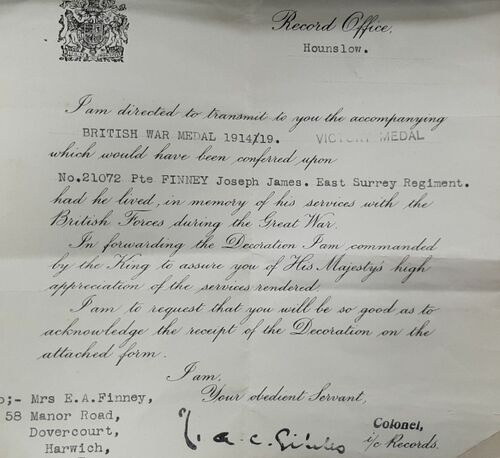 Record Office,
Hounslow.
I am directed to transmit to you the accompanying
BRITISH WAR MEDAL 1914/19. VICTORY MEDAL
which would have been conferred upon
No.21072 Pte FINNEY Joseph James. East Surrey Regiment.
had he lived, in memory of his services with the
British Forces during the Great War.
In forwarding the Decoration I am commanded
by the King to assure you of His Majesty's high
appreciation of the services rendered.
I am to request that you will be so good as to
acknowledge the receipt of the Decoration on the
attached form.
I am,
Your obedient Servant,
o;- Mrs E.A.Finney,
58 Manor Road,
Dovercourt,
Harwich,
Colonel,
i/c Records.